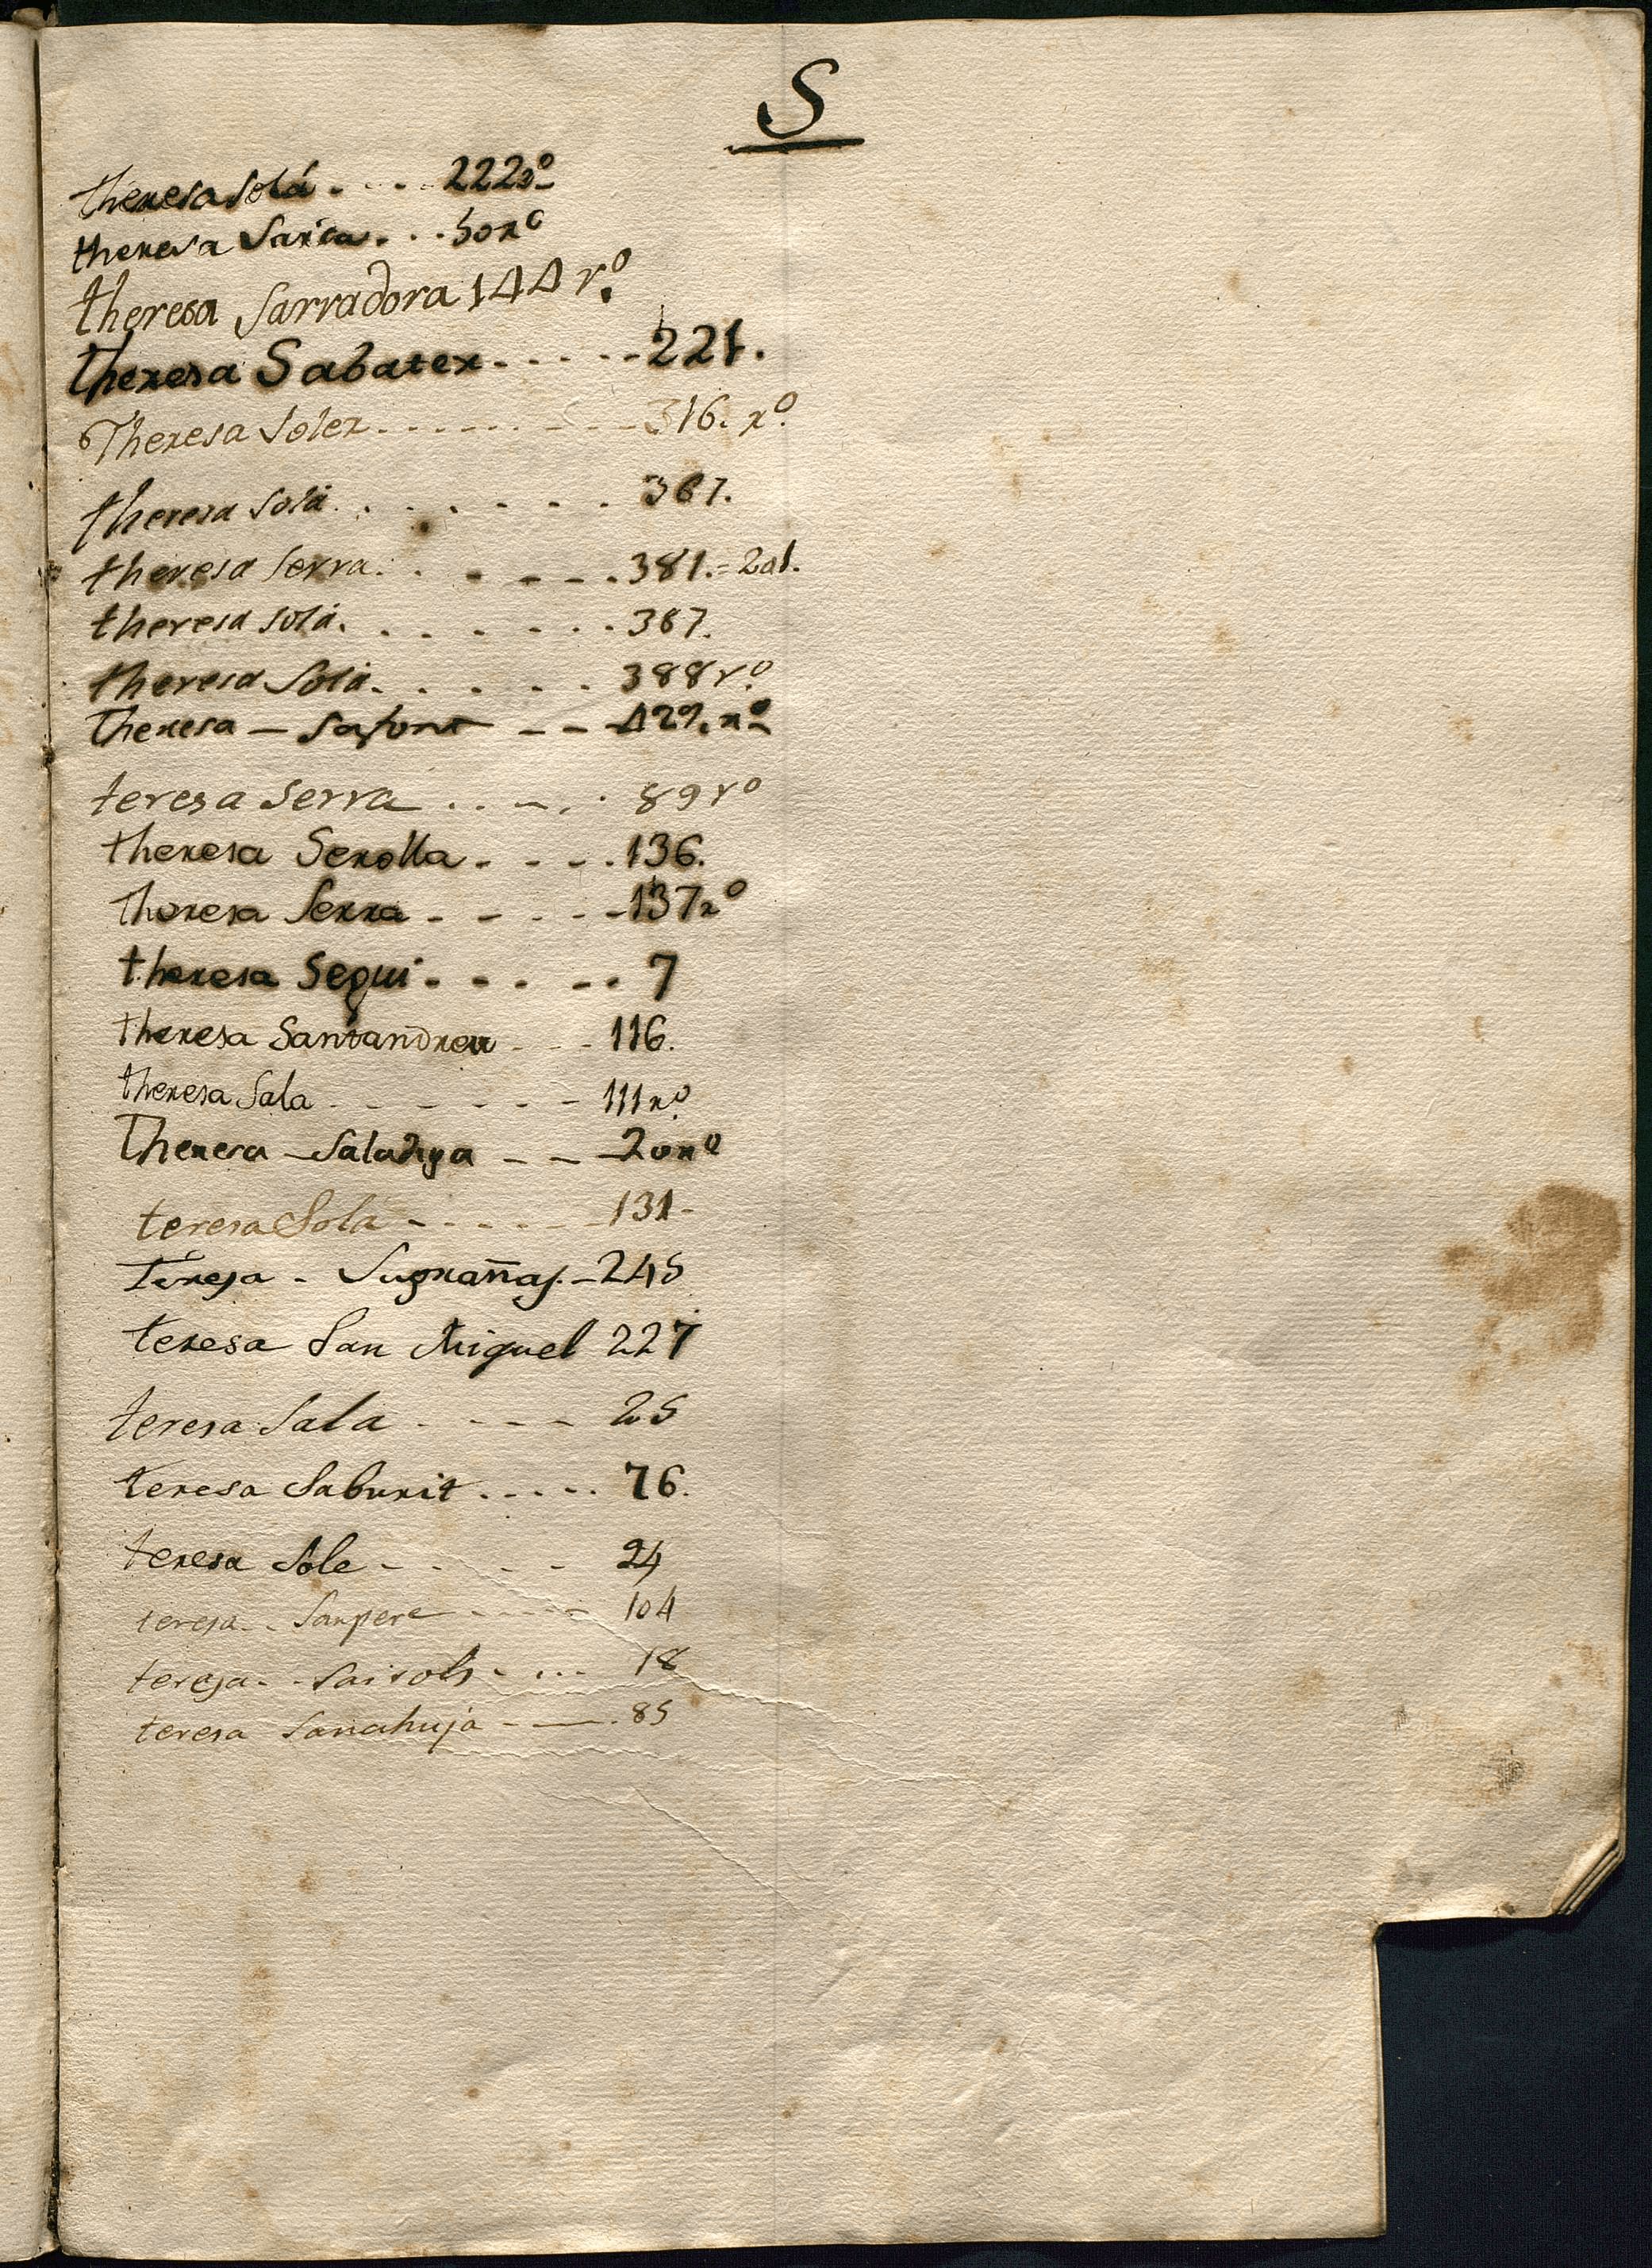 S
theresa Solá - - - - 222 ro
theresa Sarra . . . 50 ro
theresa Sarradora 144 ro
theresa Sabater - - - - - 221.
Theresa Soler - - - - - - - - 316. ro
theresa Solá . . . . . . . 367.
theresa Serra . . - - - - . 381. = 201.
theresa Solá . . . . . . . 387.
theresa Solá . . . . . . 388 ro
theresa — Safont — — 429. ro
teresa Serra . . - . . 89 ro
theresa Serolla - - - . 136.
theresa Serra - - - - - 137 ro
theresa Segui - - - - - . 7
theresa Santandreu - - - 116.
theresa Sala - - - - - - - 111 ro
Theresa — Saladiga — — 20 ro
teresa Solá - - - - - - 131 -
Teresa - Sugrañas. - 245
teresa San Miguel 227
teresa Sala - - - - - 25
teresa Saburit . - - - - 76.
teresa Sole - - - - - 24
teresa - - Sanpere - - - - - 104
teresa - - Sairols - . . . 18
teresa Sanahuja - — . 85